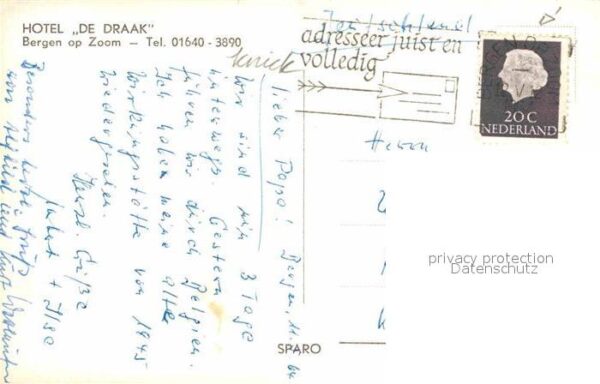 HOTEL „DE DRAAK"
Bergen op Zoom — Tel. 01640 - 3890
Deutschland
adresseer juist en
volledig
20 C
NEDERLAND
Herrn
privacy protection
Datenschutz
SPARO
Bergen, 11.
lieber Papa!
Wir sind nun 3 Tage
unterwegs. Gestern
fuhren wir durch Belgien.
Ich habe meine alte
Wirkungsstätte von 1945
wiedergesehen.
Herzl. Grüße
+ Ilse
Besonders